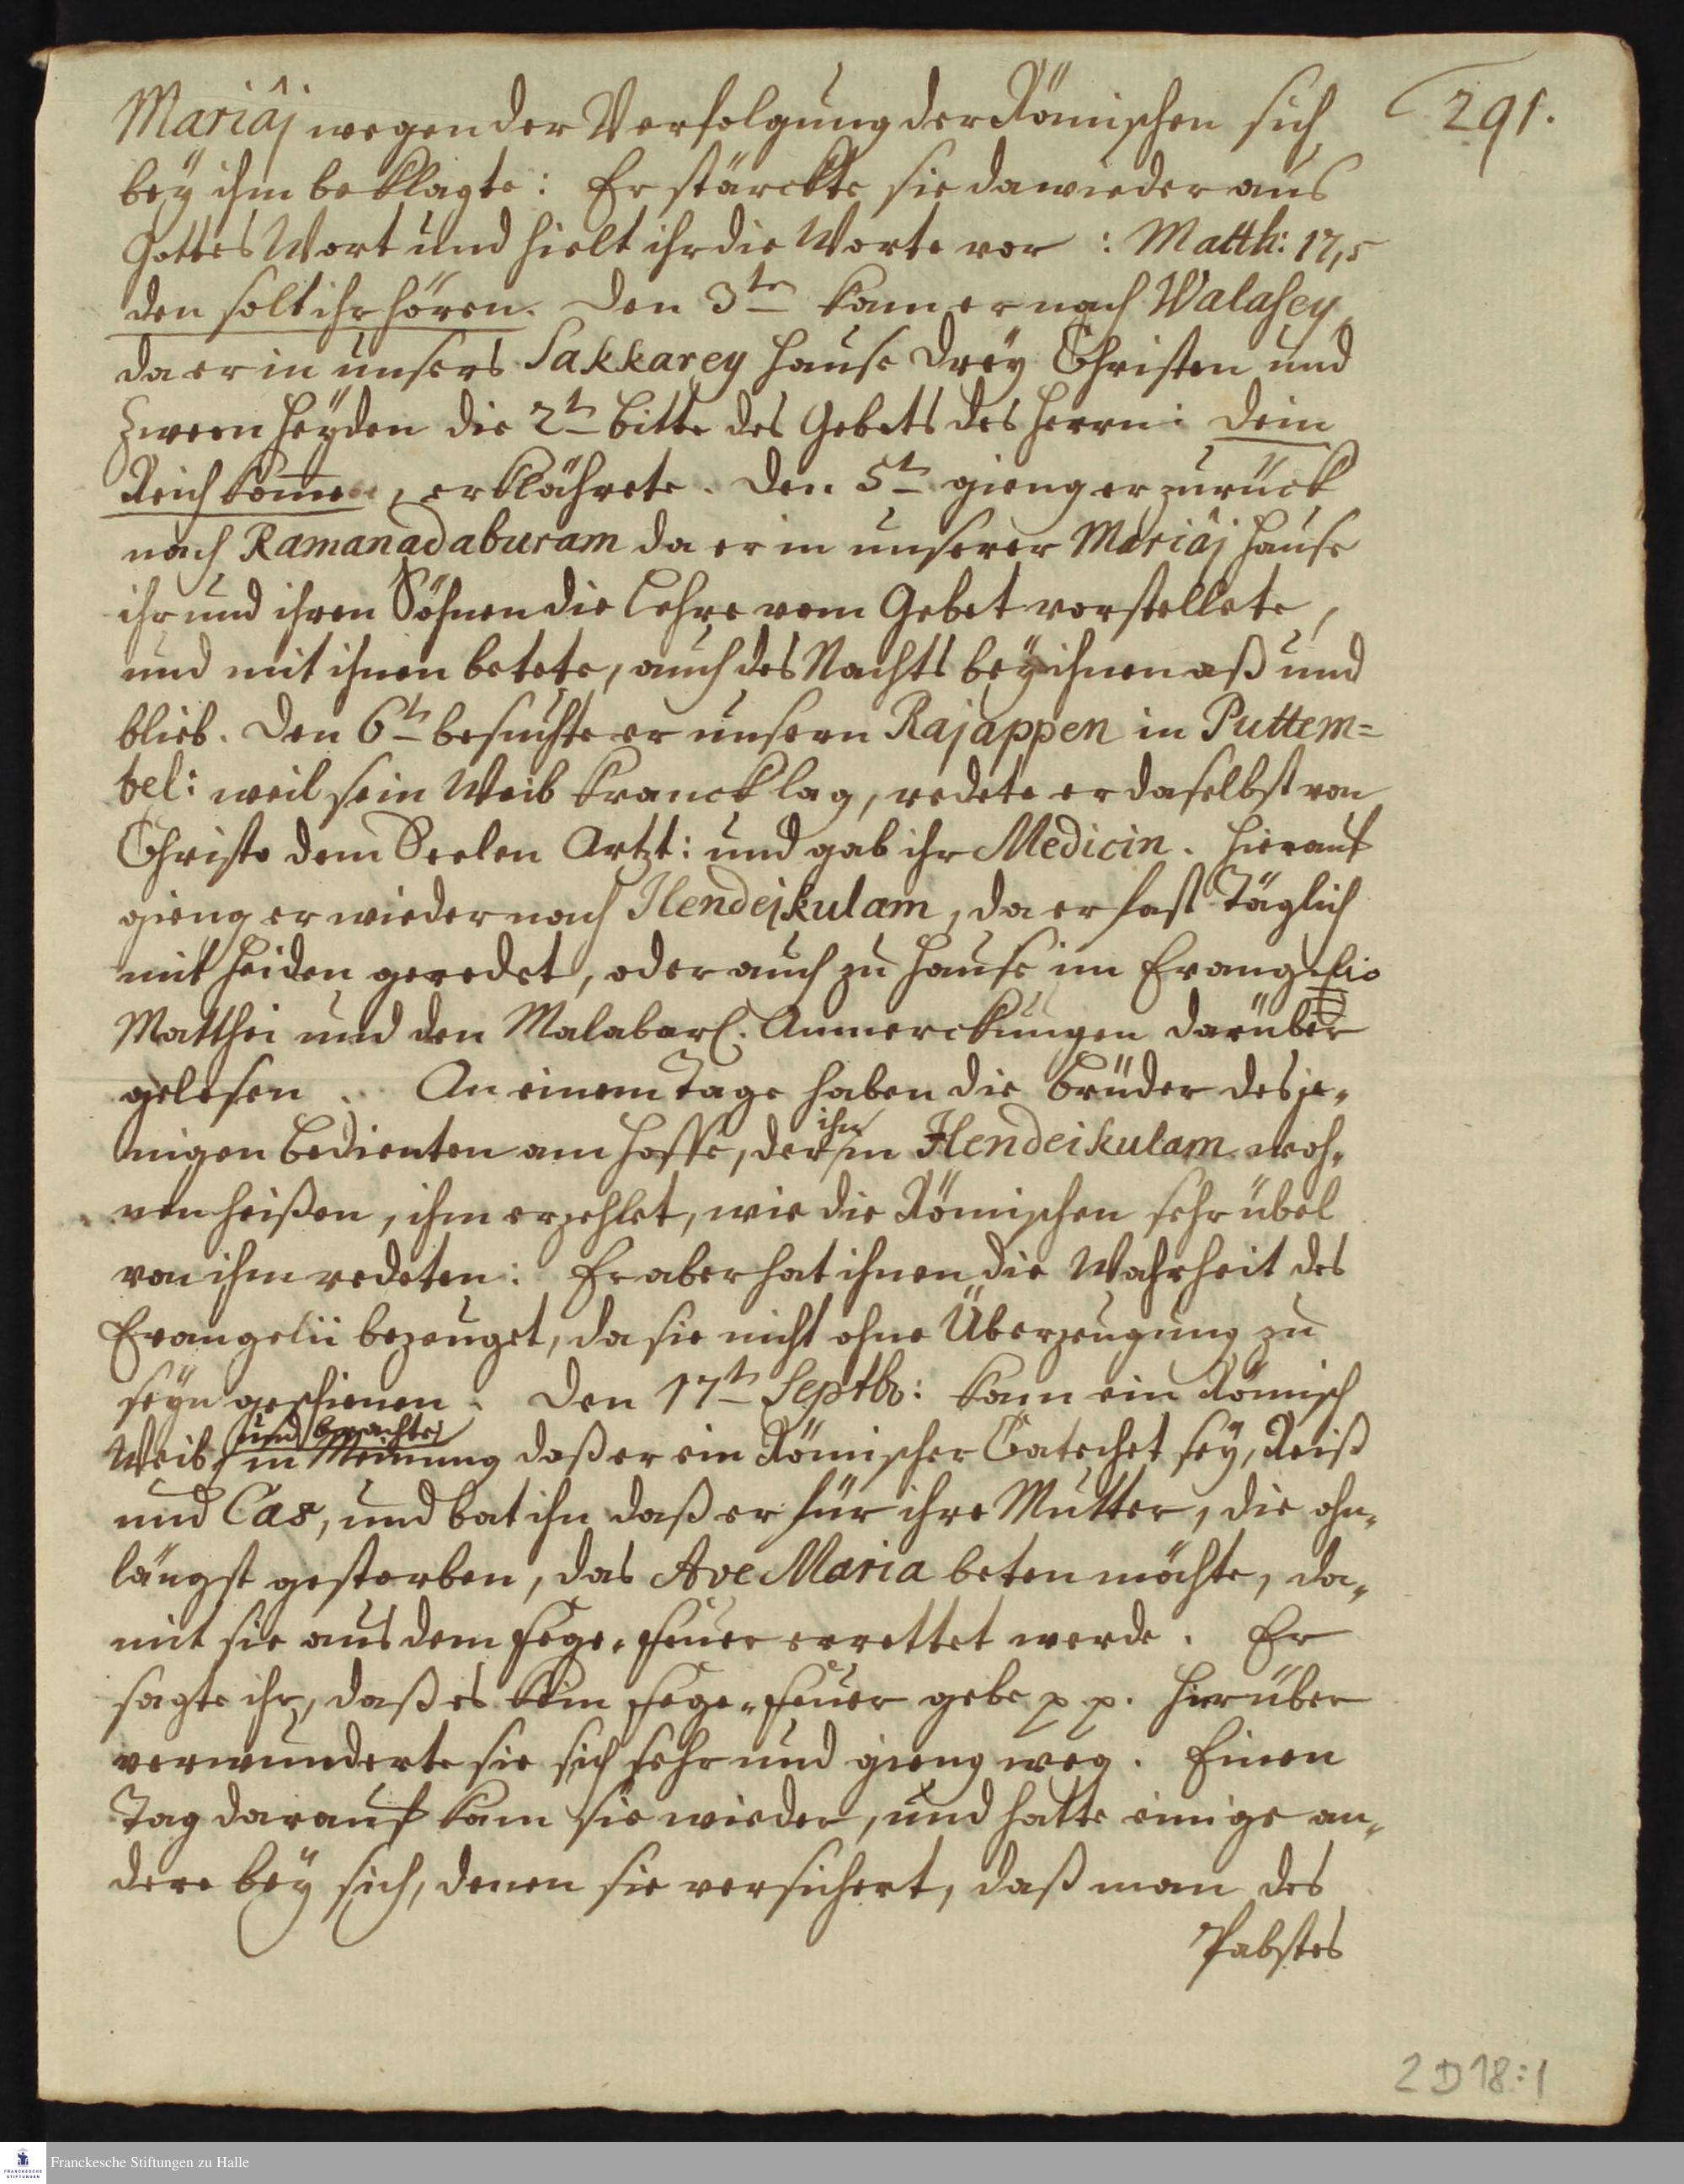 291.
Mariâj wegen der Verfolgung der Römischen sich
bey ihm beklagte: Er stärckte sie dawieder aus
Gottes Wort und hielt ihr die Worte vor : Matth: 17,5
den solt ihr hören. Den 3tn kam er nach Walasey,
da er in unsers Sakkarey Hause drey Christen und
zween Heyden die 2tn Bitte des Gebets des Herrn: Dein
Reich komme, erklährete. Den 5tn gieng er zurück
nach Ramanadaburam da er in unserer Mariâj Hause
ihr und ihren Söhnen die Lehre vom Gebet vorstellete,
und mit ihnen betete, auch des Nachts bey ihnen aß und
blieb. Den 6tn besuchte er unsern Rajappen in Puttem=
bel: weil sein Weib kranck lag, redete er daselbst von
Christo dem Seelen Artzt: und gab ihr Medicin. Hierauf
gieng er wieder nach Ilendejkulam, da er fast täglich
mit Heiden geredet, oder auch zu Hause im Evangelio
Matthei und den Malabarl. Anmerckungen darüber
gelesen. An einem Tage haben die Brüder desje„
nigen Bedienten am Hoffe, der ihn in Ilendeikulam woh„
nen heißen, ihm erzehlet, wie die Römischen sehr übel
von ihm redeten: Er aber hat ihnen die Wahrheit des
Evangelii bezeuget, da sie nicht ohne Überzeugung zu
seyn geschienen. Den 17tn Septbr: kam ein Römisch
Weib, und brachte in Meinung daß er ein Römischer Catechet sey, Reiß
und Cas, und bat ihn daß er für ihre Mutter, die ohn„
längst gestorben, das Ave Maria beten möchte, da„
mit sie aus dem Fege„Feuer errettet werde. Er
sagte ihr, daß es kein Fege„Feuer gebe pp. Hierüber
verwunderte sie sich sehr und gieng weg. Einen
Tag darauf kam sie wieder, und hatte einige an„
dere bey sich, denen sie versichert, daß man des
Pabstes
2 D 18:1
Franckesche Stiftungen zu Halle
FRANCKESCHE
STIFTUNGEN